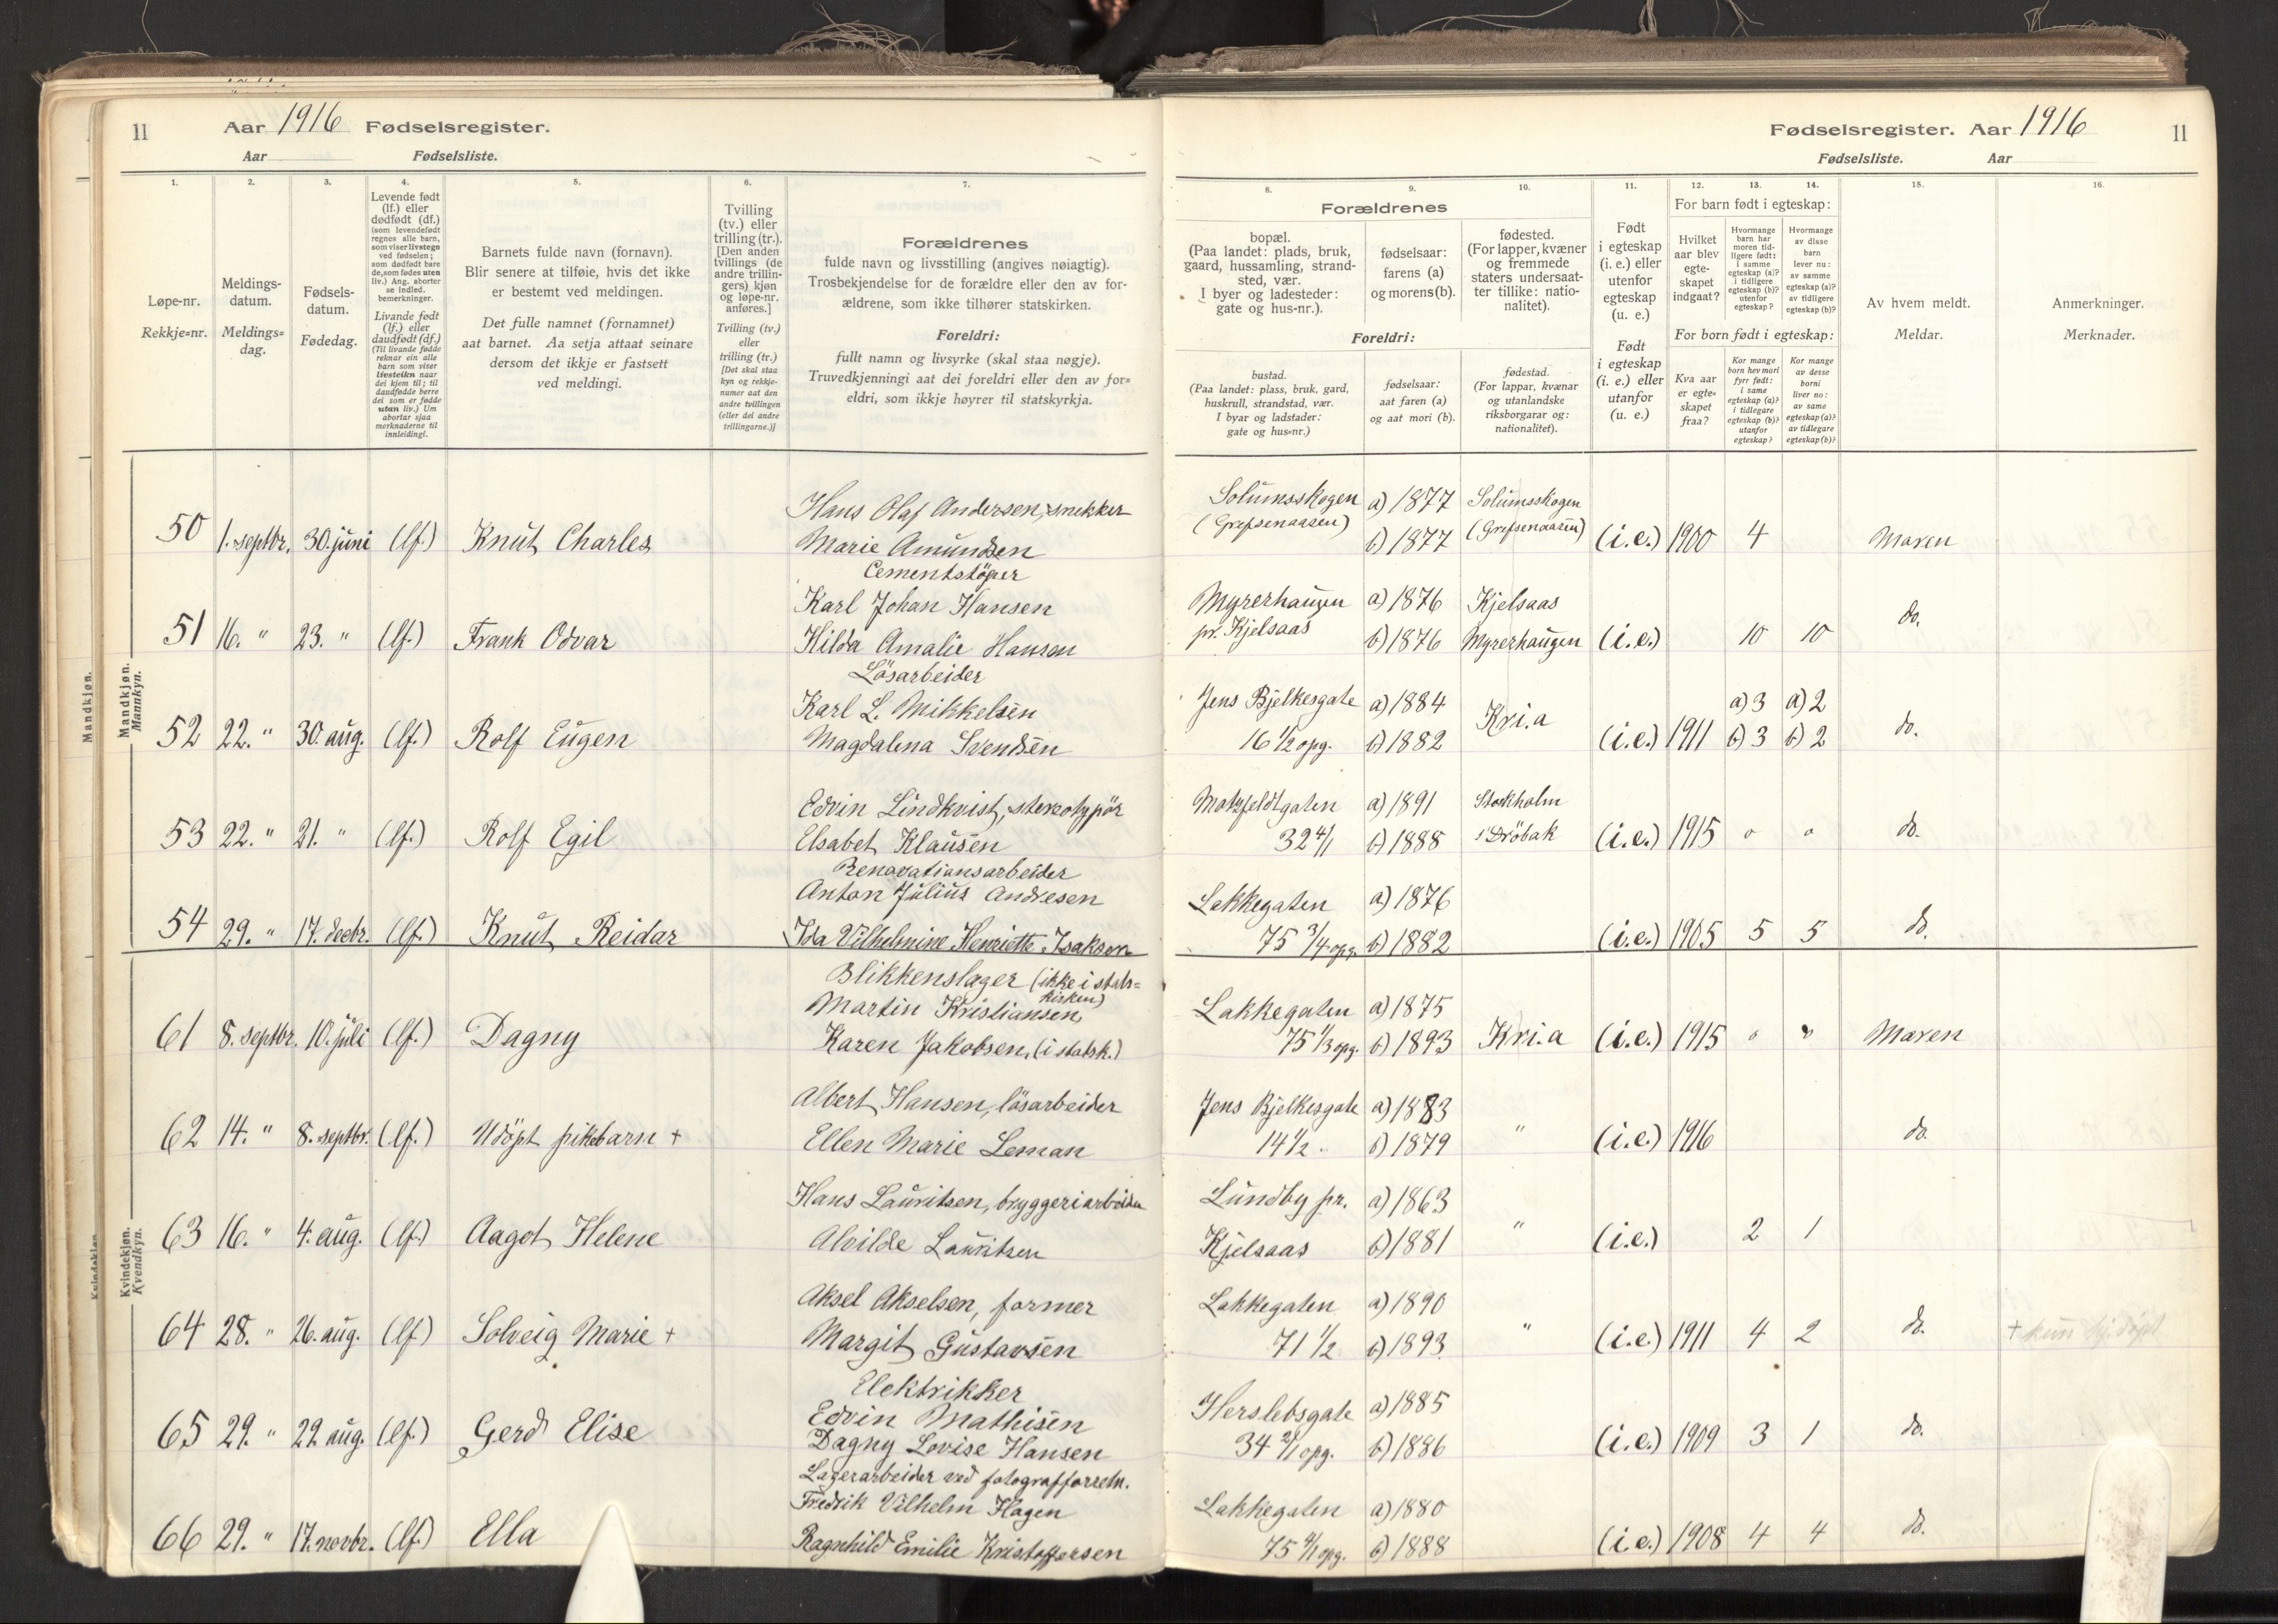 11 Aar 1916 Fødselsregister.
Aar Fødselsliste.
Fødselsregister. Aar 1916 11
Fødselsliste. Aar
1. 2. 3. 4. 5. 6. 7.
Løpe-nr.
Rekkje=nr.
Meldings-
datum.
Meldings=
dag.
Fødsels-
datum.
Fødedag.
Levende født
(lf.) eller
dødfødt (df.)
(som levendefødt
regnes alle barn,
som viser livstegn
ved fødselen;
som dødfødt bare
de, som fødes uten
liv.) Ang. aborter
se indled.
bemerkninger.
Livande født
(lf.) eller
daudfødt (df.)
(Til livande fødde
reknar ein alle
barn som viser
livsteikn naar
dei kjem til; til
daudfødde berre
dei som er fødde
utan liv.) Um
abortar sjaa
merknaderne til
innleidingi.
Barnets fulde navn (fornavn).
Blir senere at tilføie, hvis det ikke
er bestemt ved meldingen.
Det fulle namnet (fornamnet)
aat barnet. Aa setja attaat seinare
dersom det ikkje er fastsett
ved meldingi.
Tvilling
(tv.) eller
trilling (tr.).
[Den anden
tvillings (de
andre trillin-
gers) kjøn
og løpe-nr.
anføres.]
Tvilling (tv.)
eller
trilling (tr.)
[Det skal staa
kyn og rekkje-
numer aat den
andre tvillingen
(eller dei andre
trillingarne.)]
Forældrenes
fulde navn og livsstilling (angives nøiagtig).
Trosbekjendelse for de forældre eller den av for-
ældrene, som ikke tilhører statskirken.
Foreldri:
fullt namn og livsyrke (skal staa nøgje).
Truvedkjenningi aat dei foreldri eller den av for=
eldri, som ikkje høyrer til statskyrkja.
8. 9. 10. 11. 12. 13. 14. 15. 16.
Forældrenes
bopæl.
(Paa landet: plads, bruk,
gaard, hussamling, strand-
sted, vær.
I byer og ladesteder:
gate og hus-nr.).
fødselsaar:
farens (a)
og morens (b).
fødested.
(For lapper, kvæner
og fremmede
staters undersaat-
ter tillike: natio-
nalitet).
Foreldri:
bustad.
(Paa landet: plass, bruk, gard,
huskrull, strandstad, vær.
I byar og ladstader:
gate og hus=nr.)
fødselsaar:
aat faren (a)
og aat mori (b).
fødestad.
(For lappar, kvænar
og utanlandske
riksborgarar og:
nationalitet).
Født
i egteskap
(i. e.) eller
utenfor
egteskap
(u. e.)
Født
i egteskap
(i. e.) eller
utanfor
(u. e.)
For barn født i egteskap:
Hvilket
aar blev
egte-
skapet
indgaat?
Hvormange
barn har
moren tid-
ligere født:
i samme
egteskap (a)?
i tidligere
egteskap (b)?
utenfor
egteskap?
Hvormange
av disse
barn
lever nu:
av samme
egteskap (a)?
av tidligere
egteskap (b)?
For born født i egteskap:
Kva aar
er egte=
skapet
fraa?
Kor mange
born hev mori
fyrr født:
i same
egteskap (a)?
i tidlegare
egteskap (b)?
utanfor
egteskap?
Kor mange
av desse
borni
liver no:
av same
egteskap (a)?
av tidlegare
egteskap (b)?
Av hvem meldt.
Meldar.
Anmerkninger.
Merknader.
Mandkjøn.
Mandkjøn.
Mannkyn.
Hans Olaf Andersen, snekker Solumsskogen a) 1877 Solumsskogen
50 1. septbr. 30. juni (lf.) Knut Charles Marie Amundsen (Grefsenaasen) b) 1877 (Grefsenaasen) (i.e.) 1900 4 Moren
Cementstöper
Karl Johan Hansen Myrerhaugen a) 1876 Kjelsaas
51 16. " 23. " (lf.) Frank Odvar Hilda Amalie Hansen pr. Kjelsaas b) 1876 Myrerhaugen (i.e.) 10 10 do.
Lösarbeider
Karl L. Mikkelsen Jens Bjelkesgate a) 1884 Kri.a a) 3 a) 2
52 22. " 30. aug. (lf.) Rolf Eugen Magdalena Svendsen 16 1/2 opg. b) 1882 (i.e.) 1911 b) 3 b) 2 do.
Edvin Lindkvist, stereotypör Motzfeldtgaten a) 1891 Stockholm
53 22. " 21. " (lf.) Rolf Egil Elsabet Klausen 32 4/1 b) 1888 Dröbak (i.e.) 1915 0 0 do.
Renovationsarbeider
Anton Julius Andresen Lakkegaten a) 1876
54 29. " 17. decbr. (lf.) Knut Reidar Ida Vilhelmine Henriette Isaksen 75 3/4 opg. b) 1882 (i.e.) 1905 5 5 do.
Kvindekjøn.
Kvindekjøn.
Kvendkyn.
Blikkenslager (ikke i stats=
kirken)
Martin Kristiansen, Lakkegaten a) 1875
61 8. septbr. 10. juli (lf.) Dagny Karen Jakobsen, (i statsk.) 75 1/3 opg. b) 1893 Kri.a (i.e.) 1915 0 0 Moren
Albert Hansen, lösarbeider Jens Bjelkesgate a) 1883
62 14. " 8. septbr. (lf.) Udöpt pikebarn + Ellen Marie Leman 14 1/2 b) 1879 " (i.e.) 1916 do.
Hans Lauritsen, bryggeriarbeider Lundby pr. a) 1863
63 16. " 4. aug. (lf.) Aagot Helene Alvilde Lauritsen Kjelsaas b) 1881 " (i.e.) 2 1
Aksel Akselsen, former Lakkegaten a) 1890
64 28. " 26. aug. (lf.) Solveig Marie + Margit Gustavsen 71 1/2 b) 1893 " (i.e.) 1911 4 2 do. + kun hj.döpt
Elektrikker
Edvin Mathisen Herslebsgate a) 1885
65 29. " 29. aug. (lf.) Gerd Elise Dagny Lovise Hansen 34 2/1 opg. b) 1886 (i.e.) 1909 3 1 do.
Lagerarbeider ved fotografforretn.
Fredrik Vilhelm Hagen Lakkegaten a) 1880
66 29. " 17. novbr. (lf.) Ella Ragnhild Emilie Kristoffersen 75 4/1 opg. b) 1888 (i.e.) 1908 4 4 do.